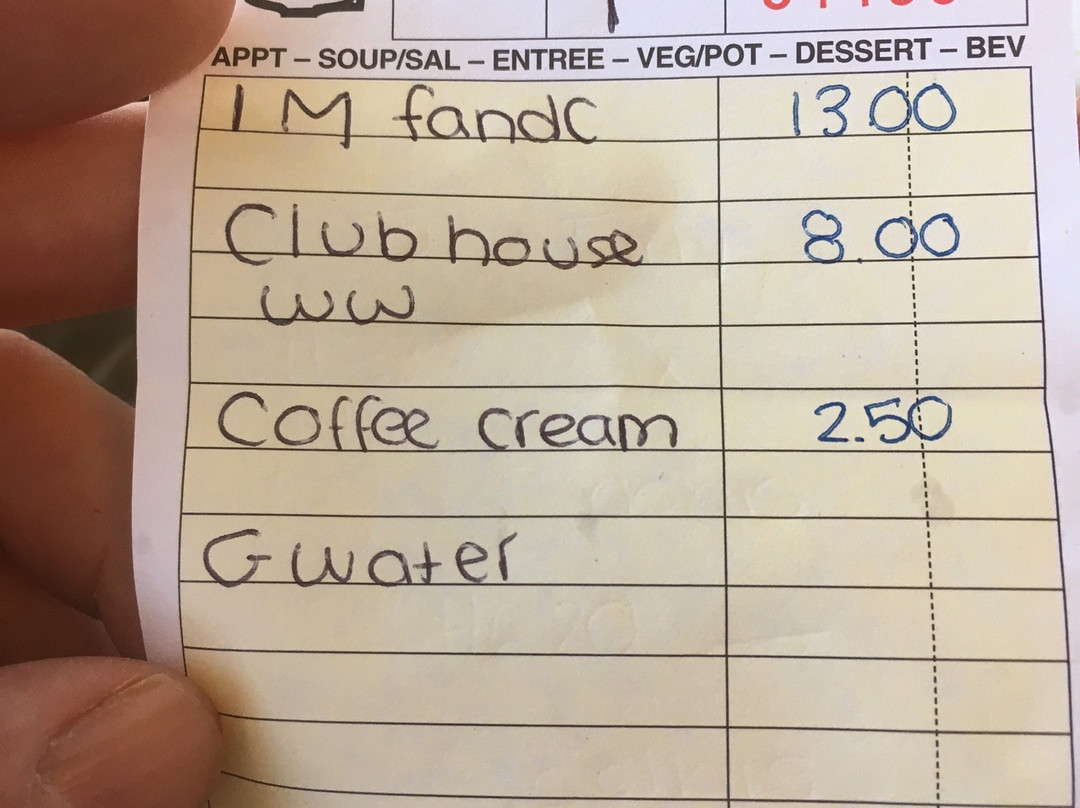 APPT – SOUP/SAL – ENTREE – VEG/POT – DESSERT – BEV
1 M fandC 13 00
Club house 8.00
WW
Coffee cream 2.50
G water